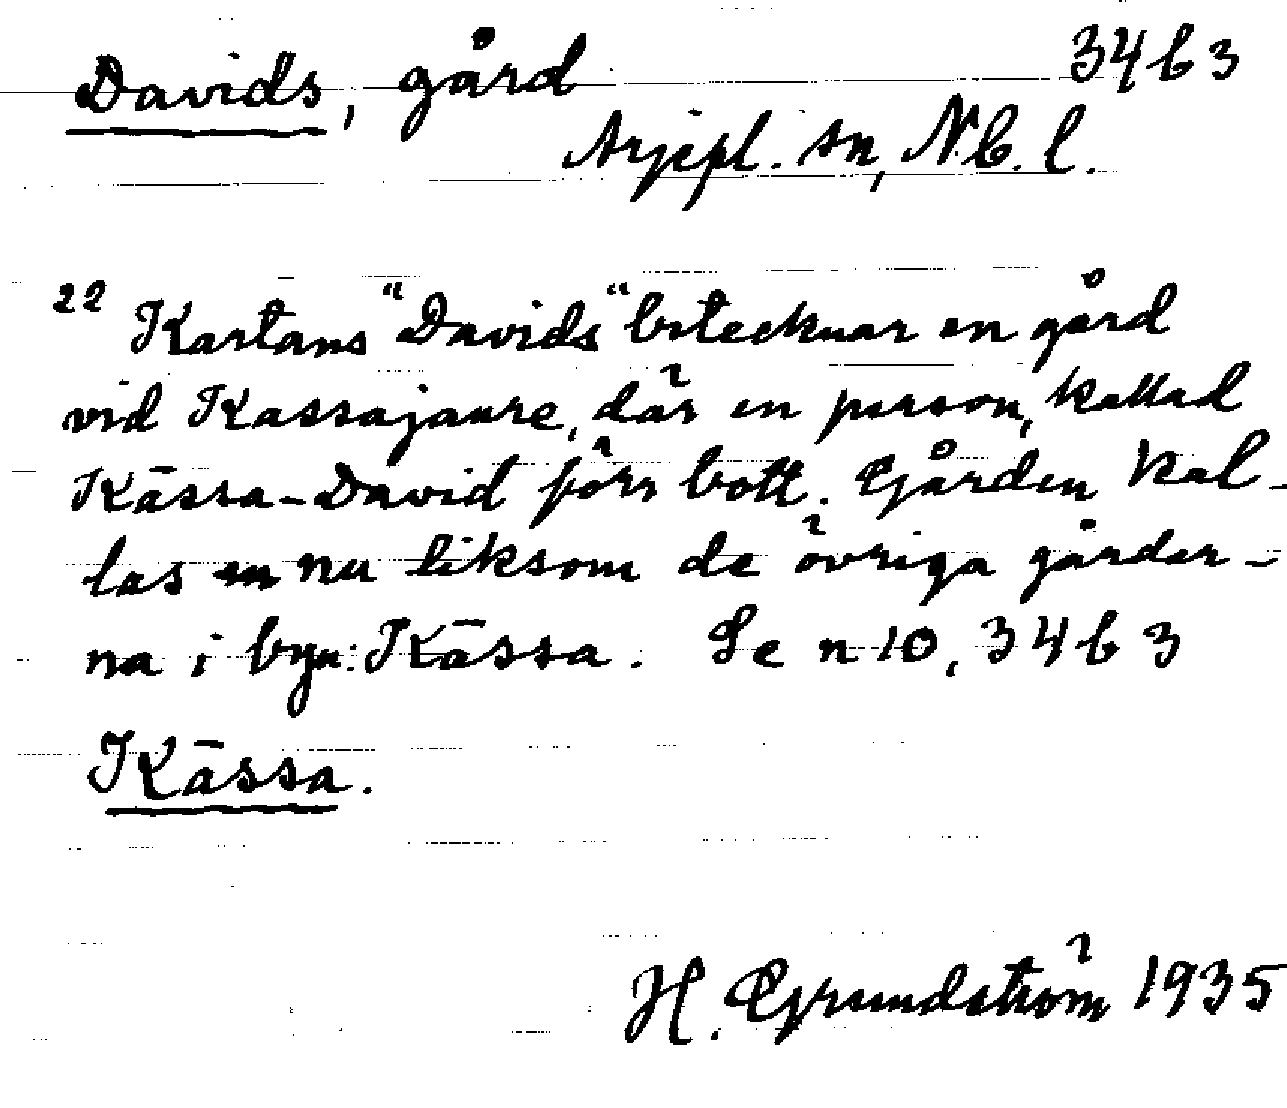 Davids, gård 34 b 3
Arjepl. sn, Nb. l.
22 Kartans "Davids" betecknar en gård
vid Kassajaure, där en person, kallad
Kāssa-David förr bott. Gården kal-
las nu liksom de övriga gårdar-
na i byn: Kāssa. Se n 10, 34 b 3
Kāssa.
H. Grundström 1935